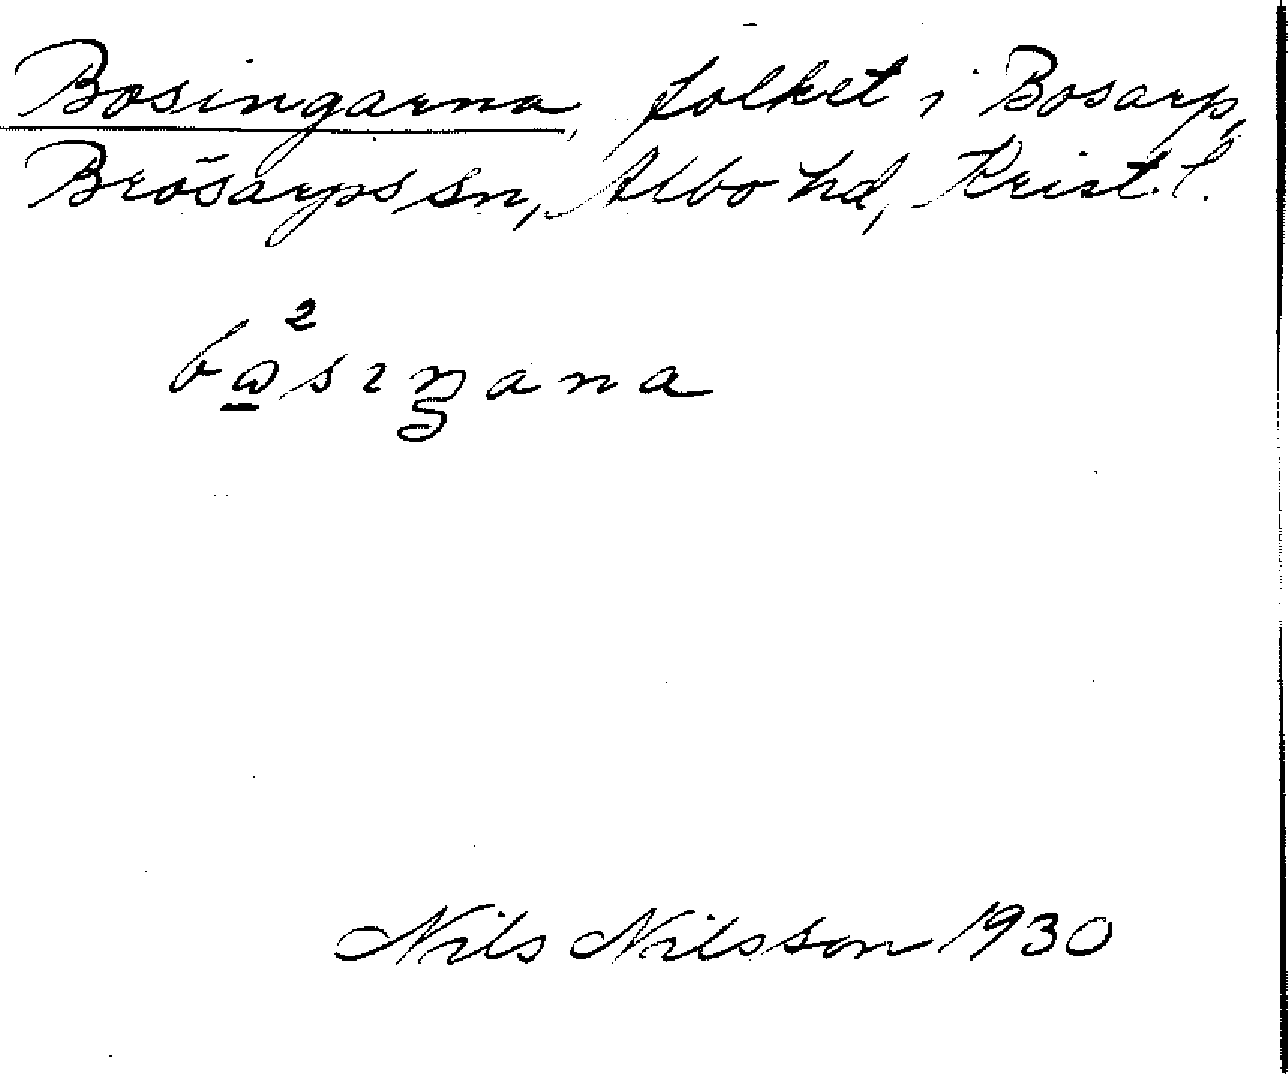 Bosingarna, folket i Bosarp,
Brösarps sn, Albo hd, Krist. l.
bω̲²sɪŋana
Nils Nilsson 1930